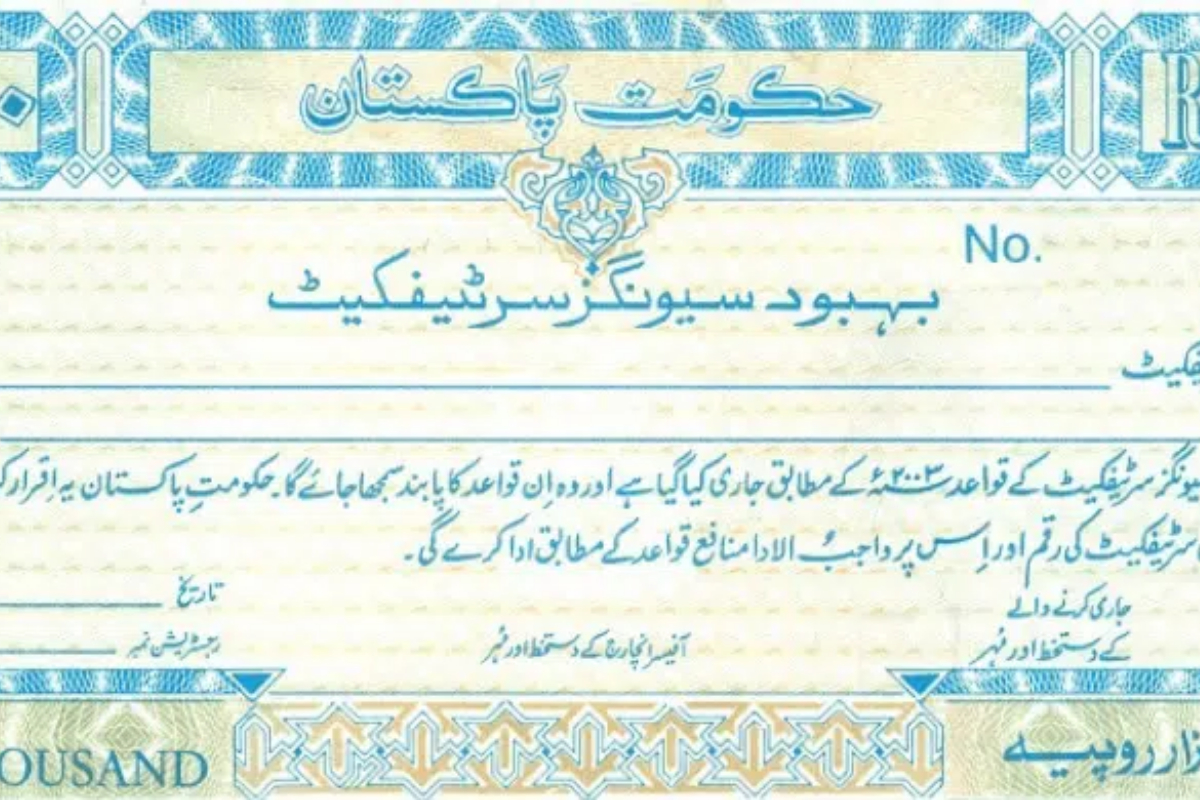 حکومت پاکستان
No.
بہبود سیونگز سرٹیفکیٹ
کے قواعد ۲۰۰۳ء کے مطابق جاری کیا گیا ہے اور وہ اِن قواعد کا پابند سمجھا جائے گا۔ حکومتِ پاکستان یہ اقرار
سرٹیفکیٹ کی رقم اور اِس پر واجبُ الادا منافع قواعد کے مطابق ادا کرے گی۔
جاری کرنے والے
کے دستخط اور مُہر
آفیسر انچارج کے دستخط اور مُہر
تاریخ
رجسٹریشن نمبر
OUSAND
روپیے